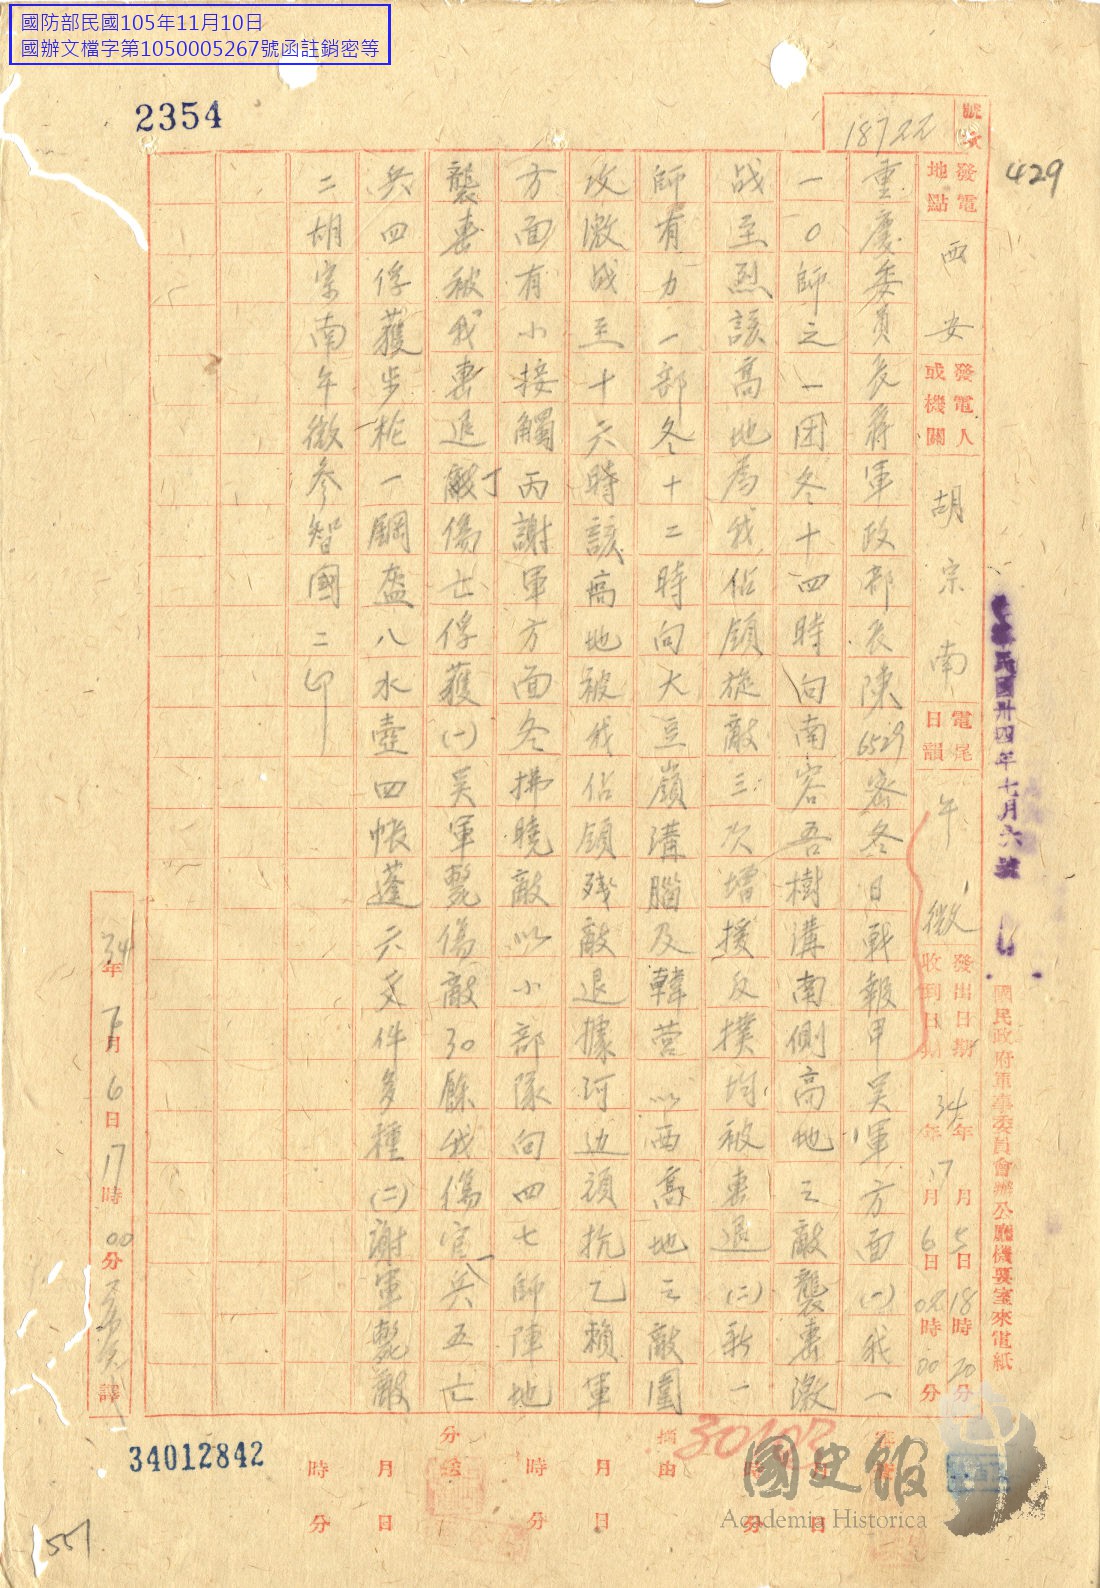 國防部民國105年11月10日
國辦文檔字第1050005267號函註銷密等
2354
429
號次
18722
發電地點
西安
發電人或機關
胡宗南
電尾日韻
午微
發出日期
34年7月5日18時20分
收到日期
年7月6日08時00分
國民政府軍事委員會辦公廳機要室來電紙
民國卅四年七月六
重慶委員長蔣軍政部長陳6529密冬日戰報甲吳軍方面(一)我一
一〇師之一团冬十四時向南窑吾樹溝南側高地之敵襲擊激
战至烈該高地為我佔領旋敵三次增援反撲均被擊退(二)新一
師有力一部冬十二時向大豆嶺溝腦及韓营以西高地之敵圍
攻激战至十六時該高地被我佔領残敵退據河边頑抗乙賴軍
方面有小接觸丙謝軍方面冬拂曉敵以小部隊向四七師陣地
襲擊被我擊退丁敵傷亡俘獲(一)吳軍斃傷敵30餘我傷官一兵五亡
兵四俘獲步枪一鋼盔八水壺四帐蓬六文件多種(二)謝軍斃敵
二胡宗南午微参智國二印
34年7月6日17時00分
譯
30102
摘由
月日時分
分送
月日時分
34012842
551
國史館
Academia Historica